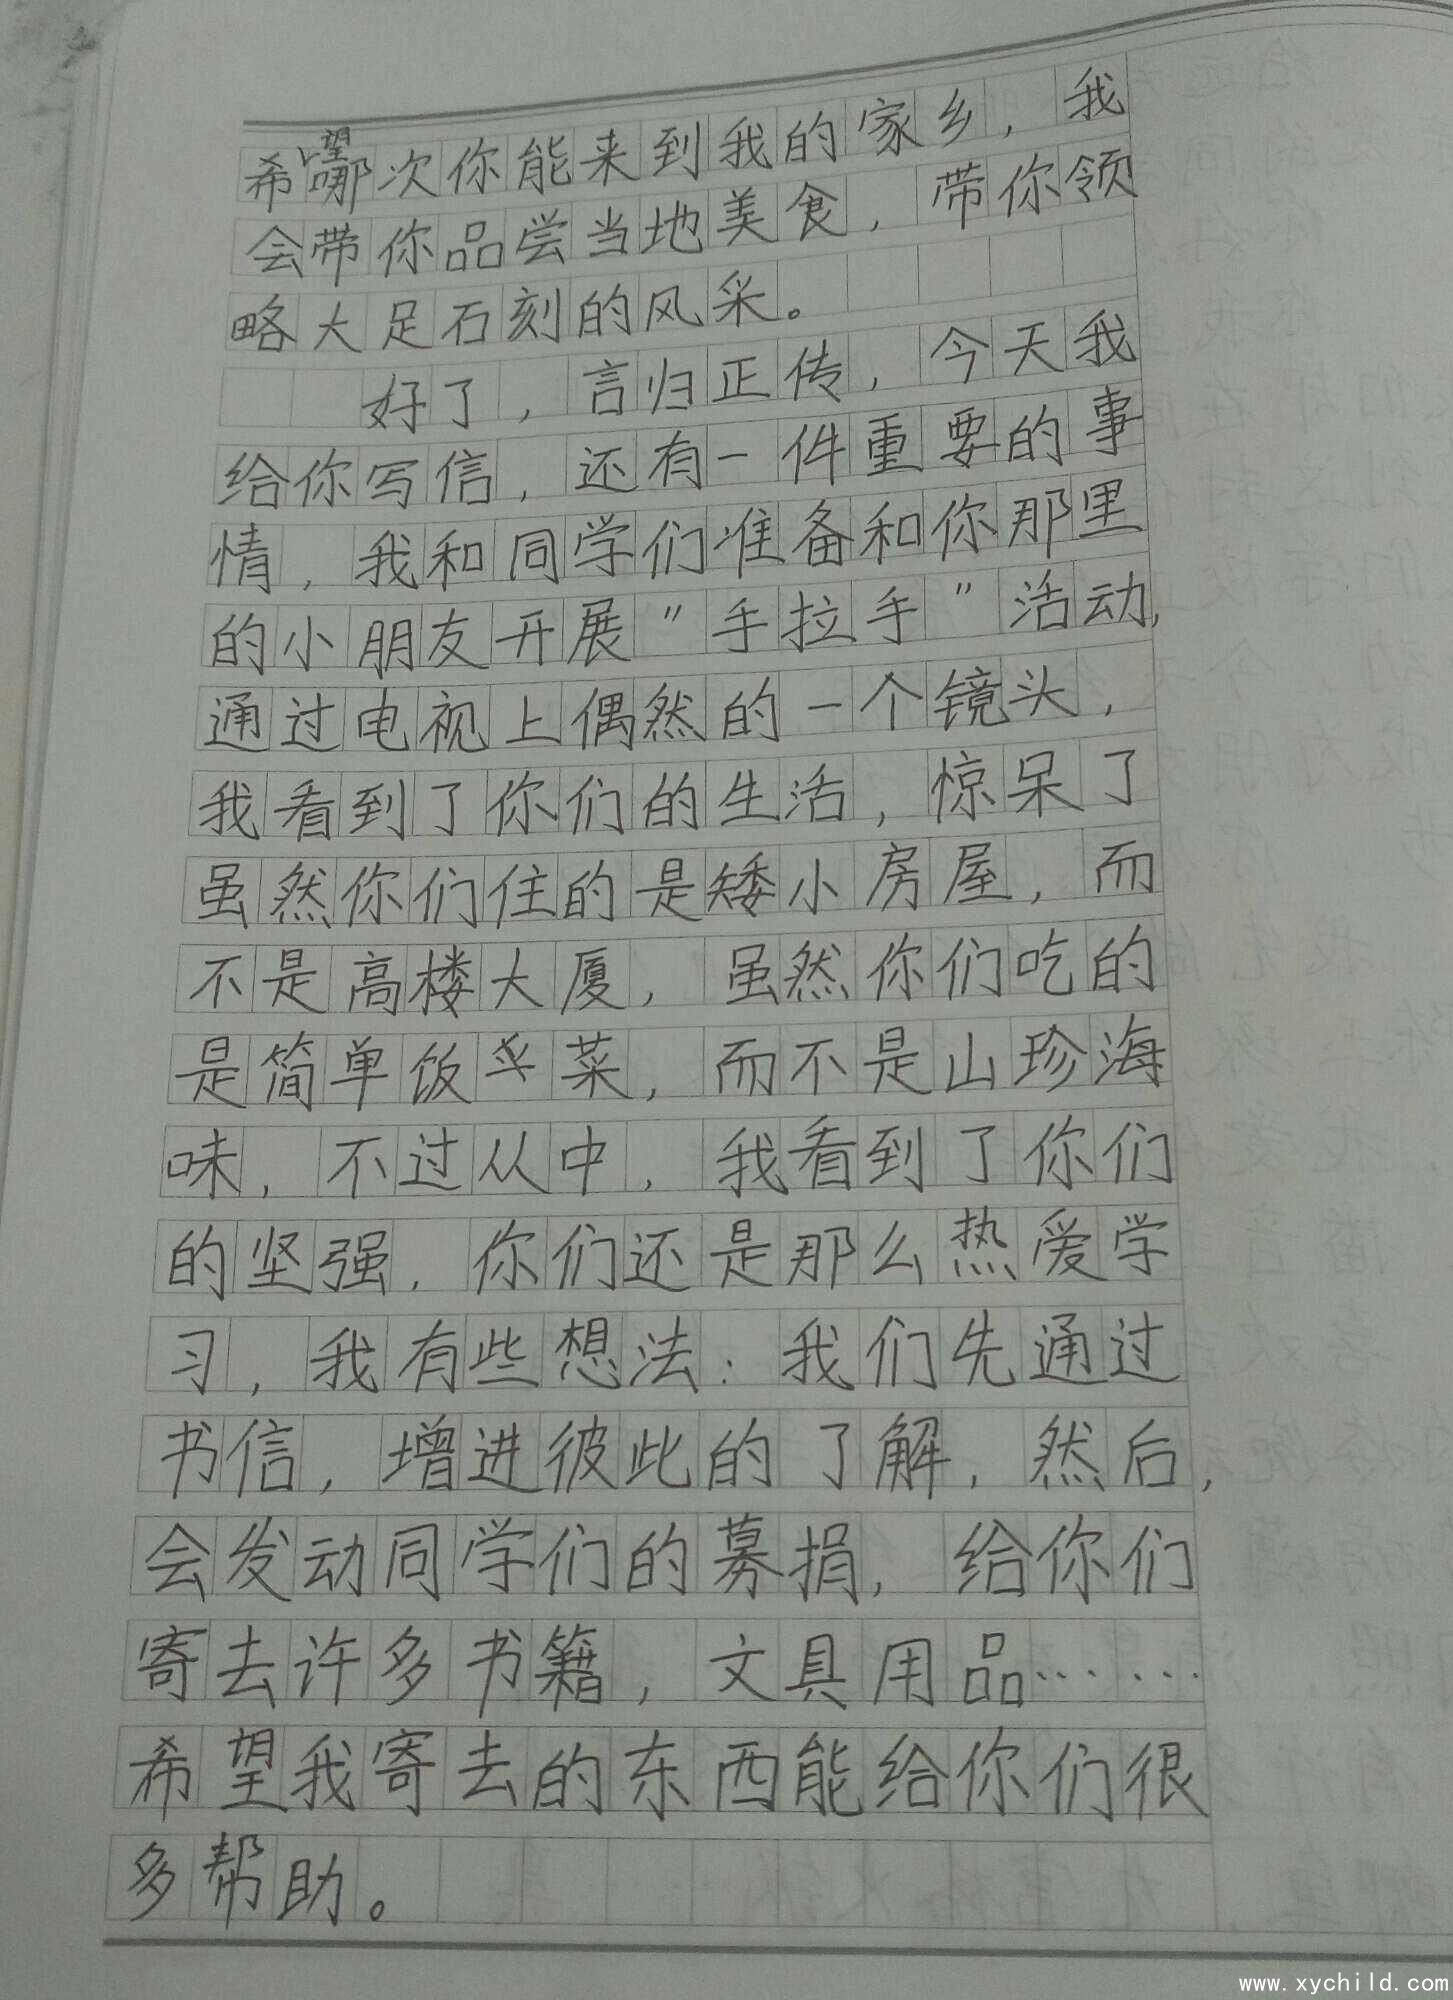 希望哪次你能来到我的家乡，我
会带你品尝当地美食，带你领
略大足石刻的风采。
好了，言归正传，今天我
给你写信，还有一件重要的事
情，我和同学们准备和你那里
的小朋友开展"手拉手"活动，
通过电视上偶然的一个镜头，
我看到了你们的生活，惊呆了
虽然你们住的是矮小房屋，而
不是高楼大厦，虽然你们吃的
是简单饭菜，而不是山珍海
味，不过从中，我看到了你们
的坚强，你们还是那么热爱学
习，我有些想法：我们先通过
书信，增进彼此的了解，然后，
会发动同学们的募捐，给你们
寄去许多书籍，文具用品……
希望我寄去的东西能给你们很
多帮助。
www.xychild.com